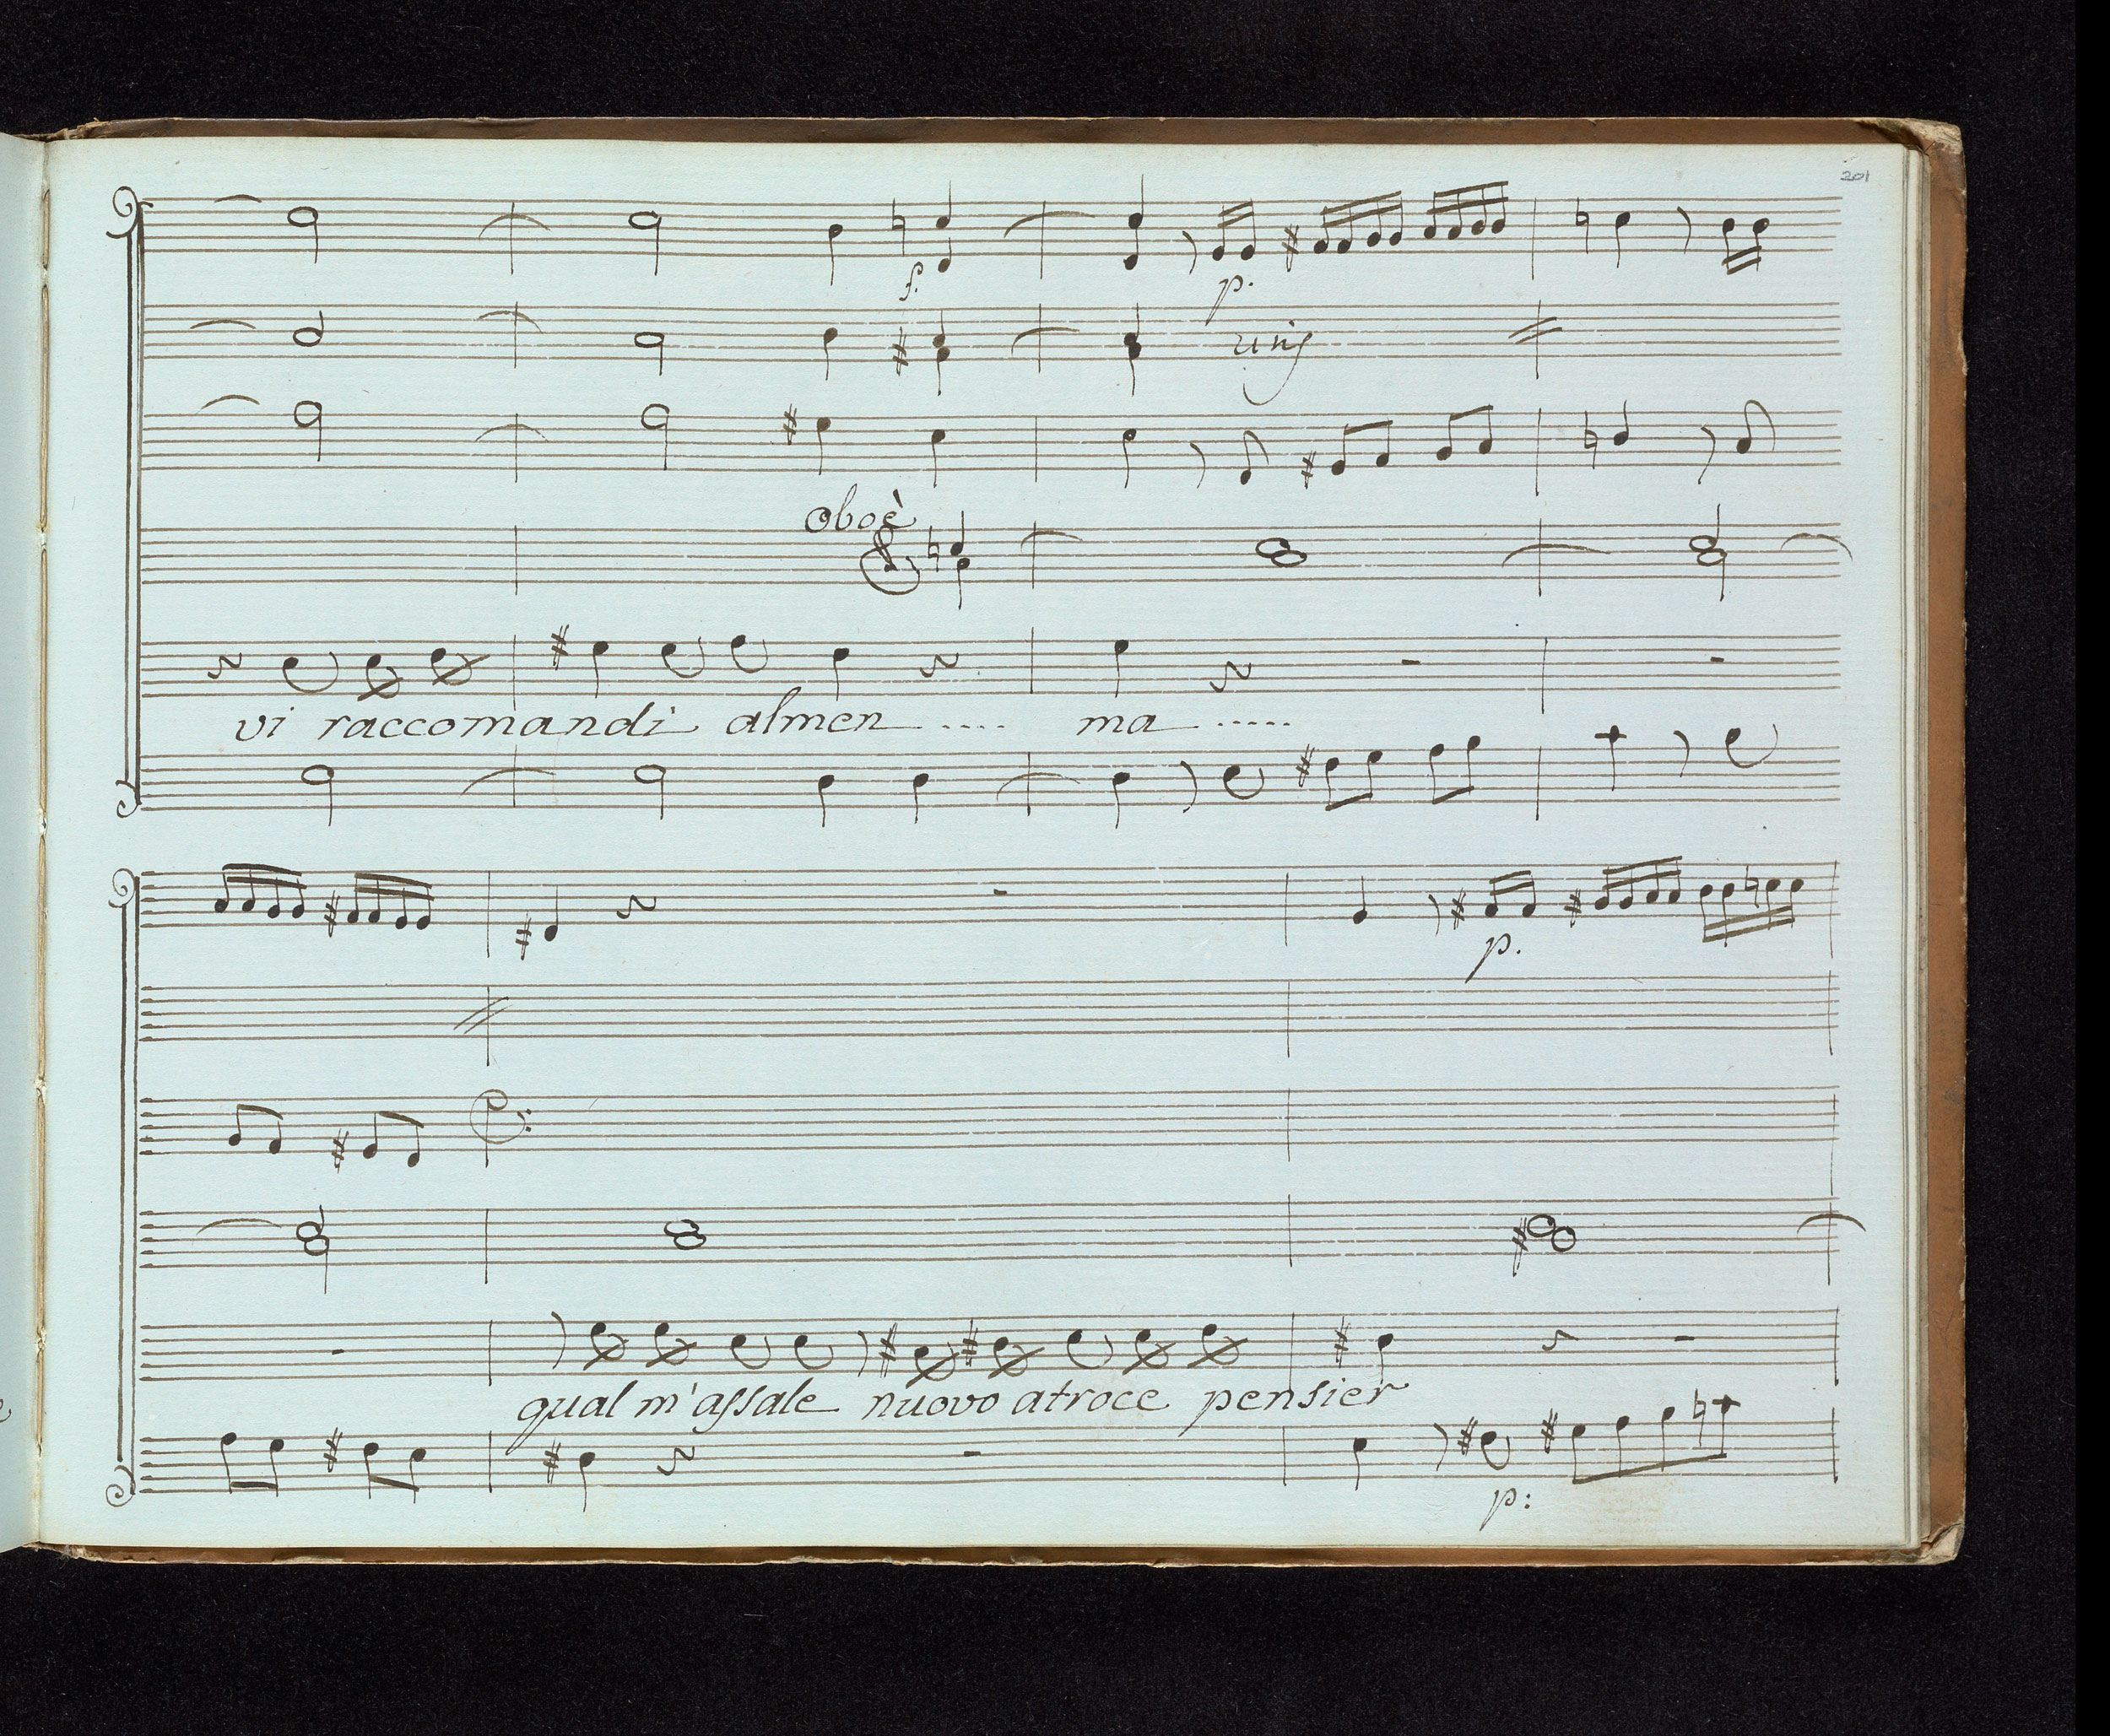 201
f.
p.
unis
oboè
vi raccomandi almen .... ma .....
p.
qual m'assale nuovo atroce pensier
p: